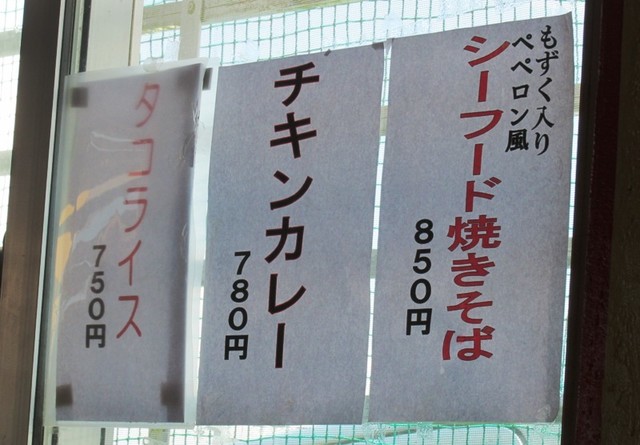 もずく入り
ペペロン風
シーフード焼きそば
850円
チキンカレー
780円
タコライス
750円